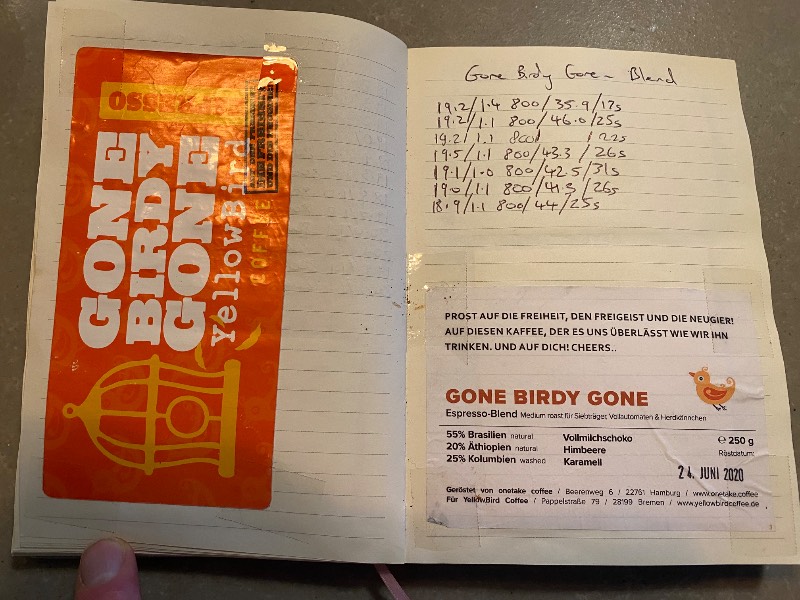 GONE
BIRDY
GONE
YellowBird
COFFEE
Gone Birdy Gone - Blend
19.2/1.4 800/35.9/17s
19.2/1.1 800/46.0/25s
19.2/1.1 800/ /22s
19.5/1.1 800/43.3/26s
19.1/1.0 800/42.5/31s
19.0/1.1 800/41.3/26s
18.9/1.1 800/44/25s
PROST AUF DIE FREIHEIT, DEN FREIGEIST UND DIE NEUGIER!
AUF DIESEN KAFFEE, DER ES UNS ÜBERLÄSST WIE WIR IHN
TRINKEN. UND AUF DICH! CHEERS..
GONE BIRDY GONE
Espresso-Blend Medium roast für Siebträger, Vollautomaten & Herdkännchen
55% Brasilien natural Vollmilchschoko ℮ 250 g
20% Äthiopien natural Himbeere Röstdatum:
25% Kolumbien washed Karamell
24. JUNI 2020
Geröstet von onetake coffee / Beerenweg 6 / 22761 Hamburg / www.onetake.coffee
Für YellowBird Coffee / Pappelstraße 79 / 28199 Bremen / www.yellowbirdcoffee.de